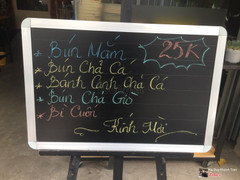 Bún Mắm
25K
Bún Chả Cá
Bánh Canh Chả Cá
Bún Chả Giò
Bì Cuốn
Kính Mời